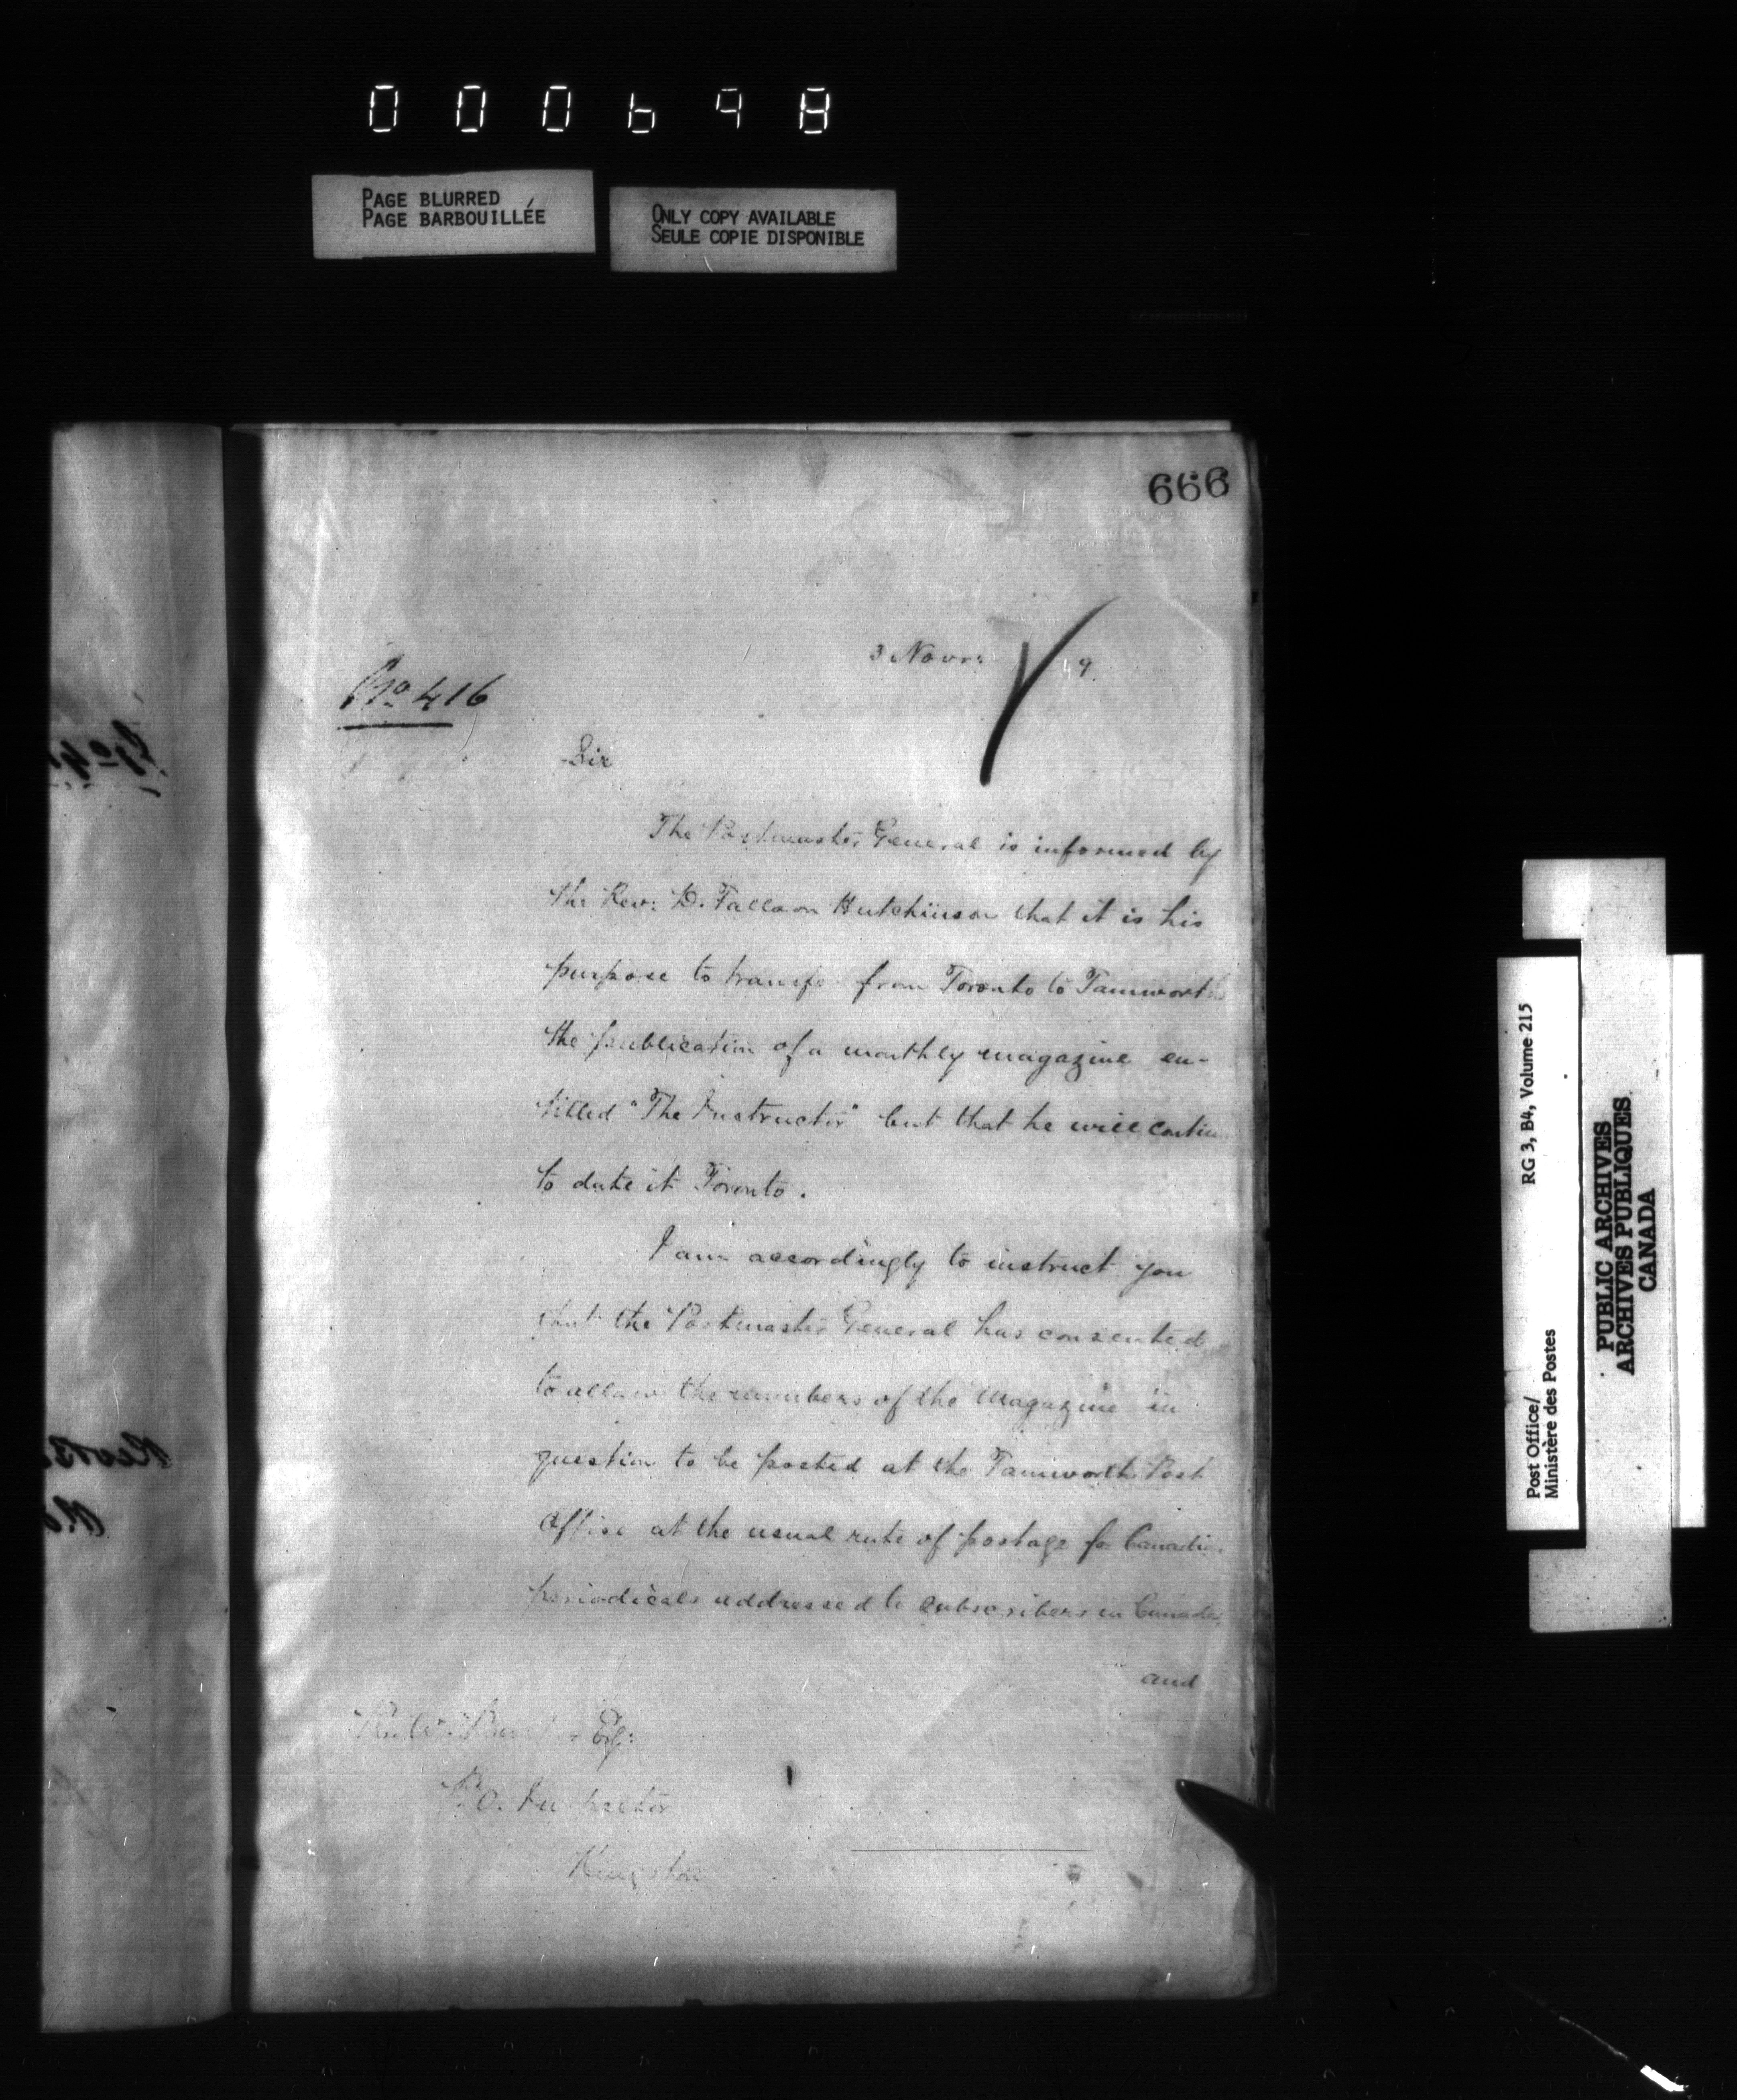 000698
PAGE BLURRED
PAGE BARBOUILLÉE
ONLY COPY AVAILABLE
SEULE COPIE DISPONIBLE
666
3 Novr: 49.
No 416
Sir
The Postmaster General is informed by
the Rev: D. Falloon Hutchinson that it is his
purpose to transfer from Toronto to Tamworth
the publication of a monthly magazine en-
titled "The Instructor" but that he will continue
to date it Toronto.
I am accordingly to instruct you
that the Postmaster General has consented
to allow the numbers of the Magazine in
question to be posted at the Tamworth Post
Office at the usual rate of postage for Canadian
periodicals addressed to subscribers in Canada,
and
Esq:
P.O. Inspector
Kingston
RG 3, B4, Volume 215
Post Office/
Ministère des Postes
PUBLIC ARCHIVES
ARCHIVES PUBLIQUES
CANADA